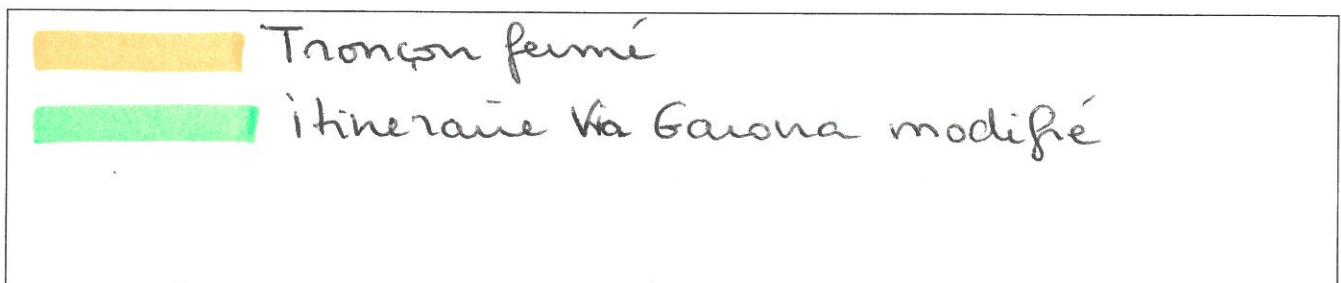 Tronçon fermé
itineraire Via Garona modifié